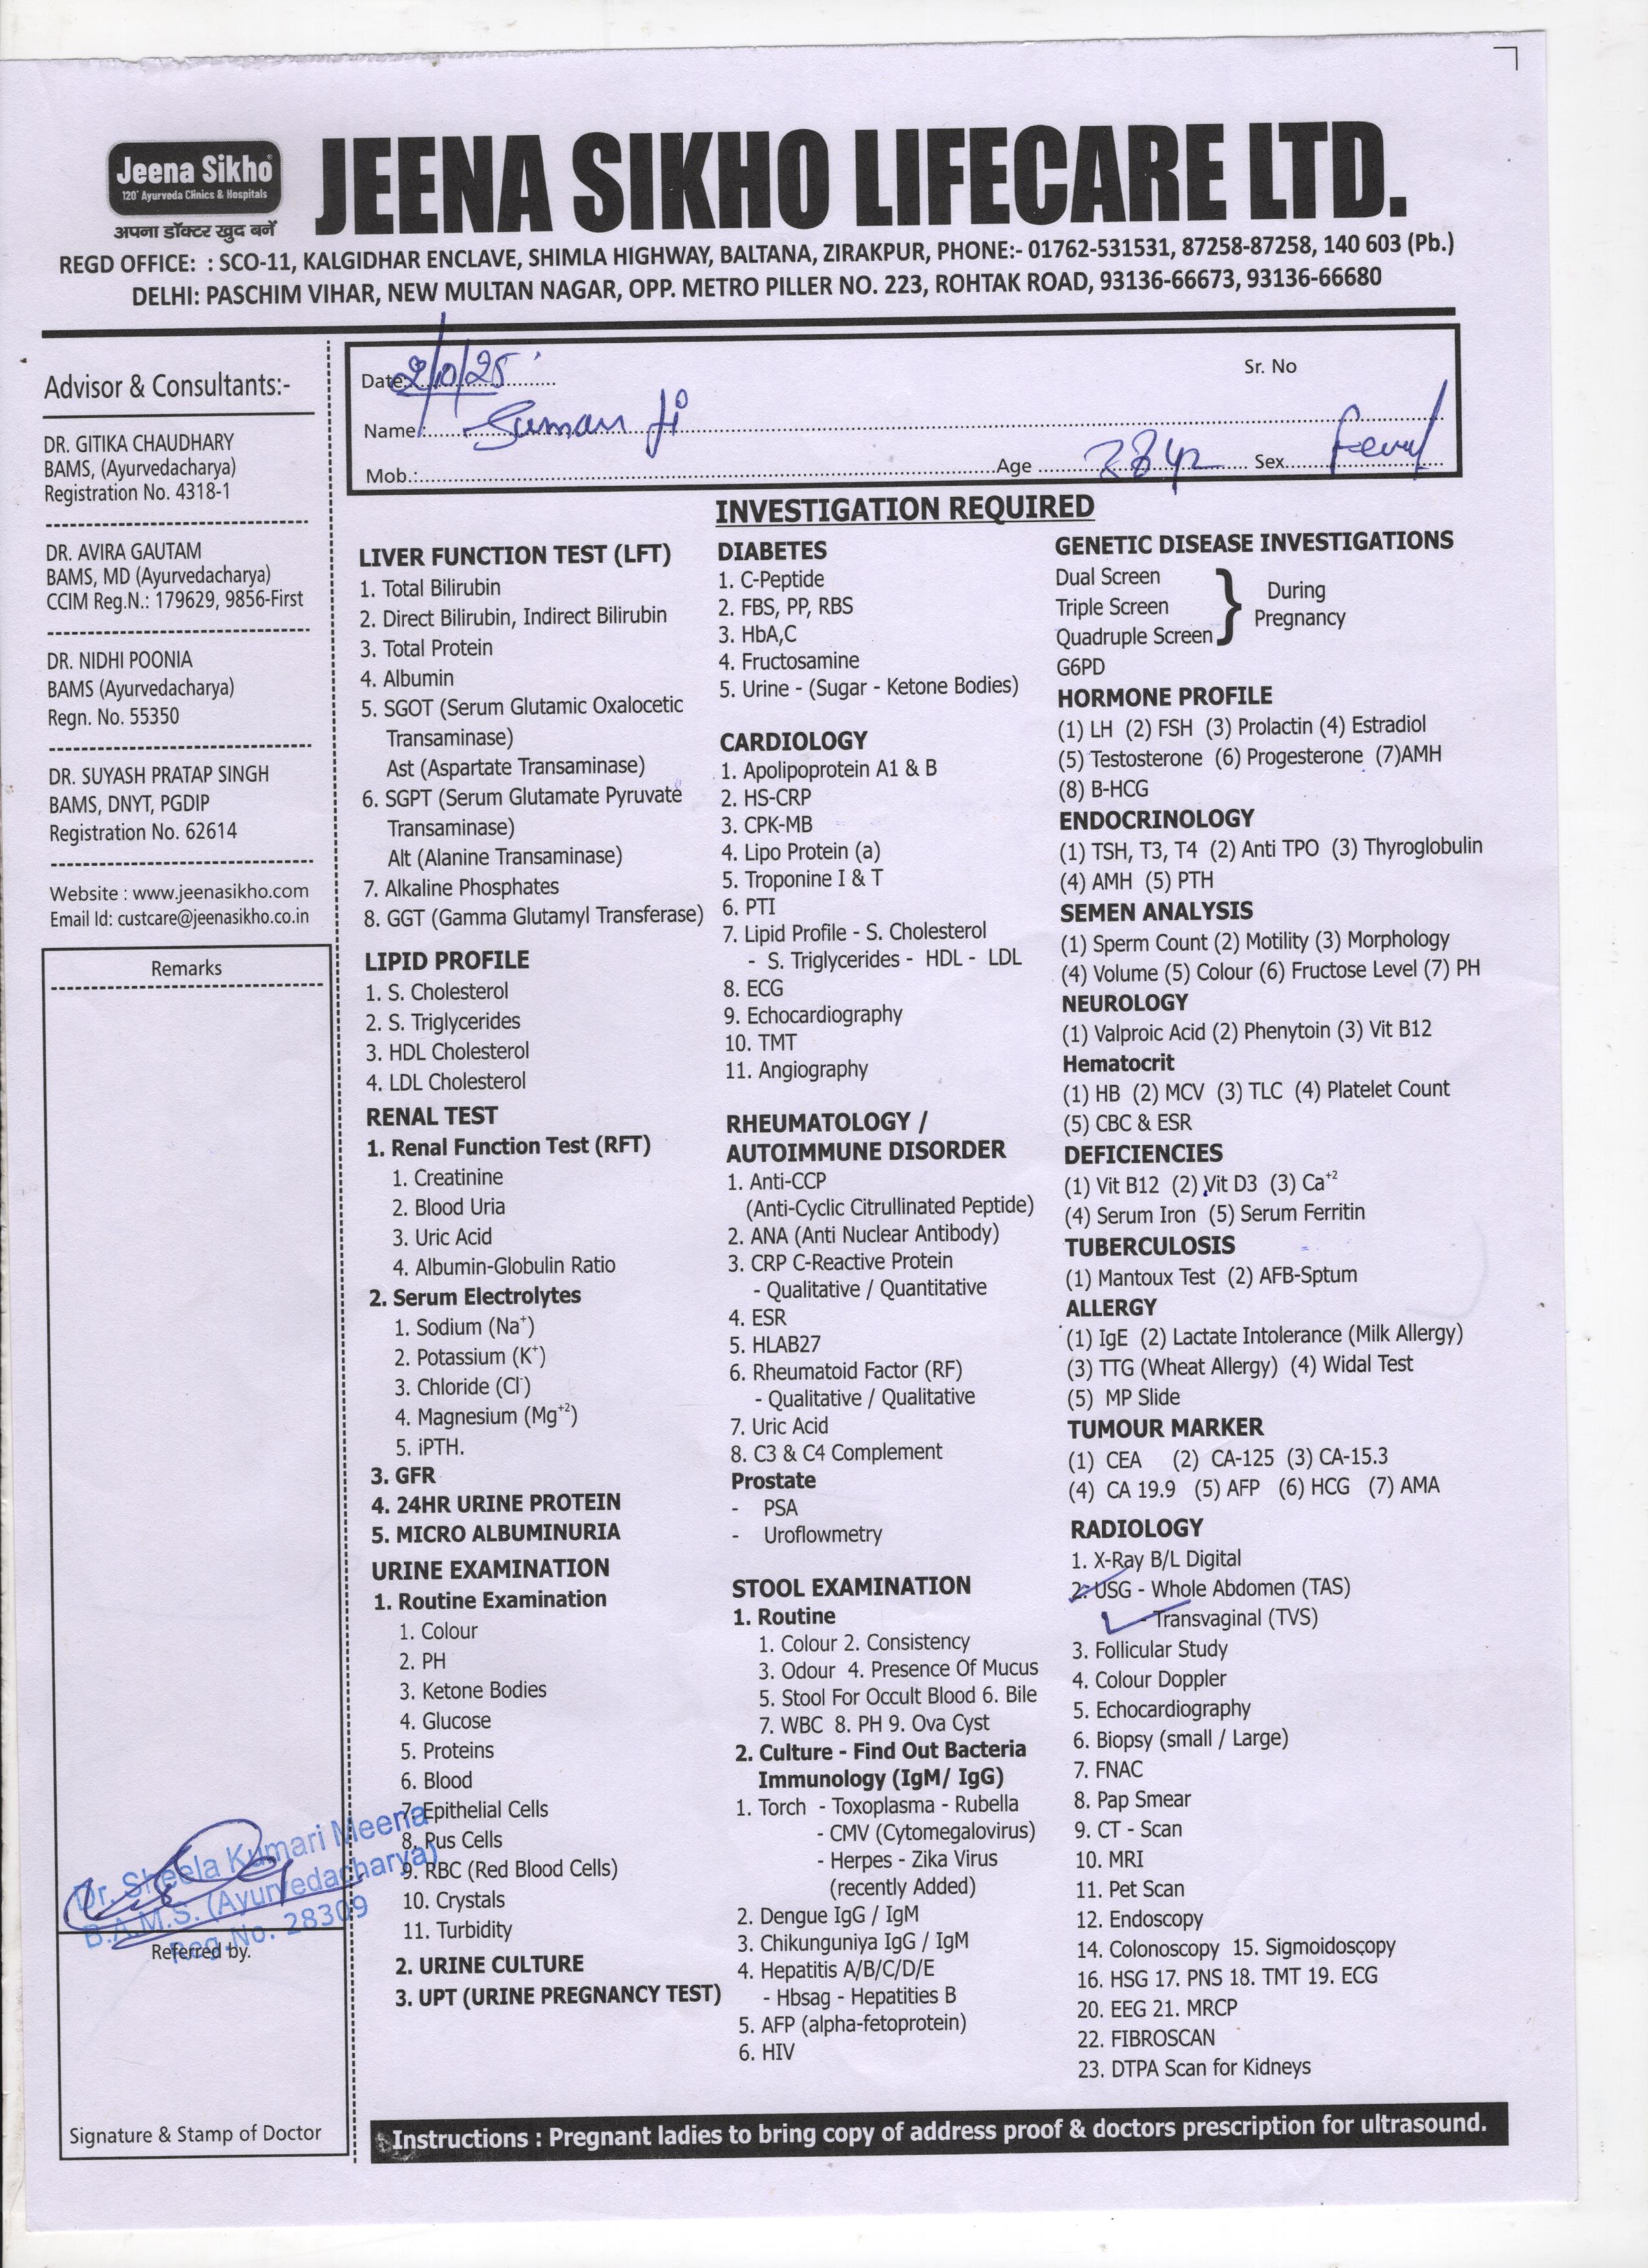 Jeena Sikho
120+ Ayurveda Clinics & Hospitals
अपना डॉक्टर खुद बनें
JEENA SIKHO LIFECARE LTD.
REGD OFFICE: : SCO-11, KALGIDHAR ENCLAVE, SHIMLA HIGHWAY, BALTANA, ZIRAKPUR, PHONE:- 01762-531531, 87258-87258, 140 603 (Pb.)
DELHI: PASCHIM VIHAR, NEW MULTAN NAGAR, OPP. METRO PILLER NO. 223, ROHTAK ROAD, 93136-66673, 93136-66680
Date: 2/10/25
Sr. No
Name: Suman Ji
Mob.: Age 38 yr Sex
Advisor & Consultants:-
DR. GITIKA CHAUDHARY
BAMS, (Ayurvedacharya)
Registration No. 4318-1
DR. AVIRA GAUTAM
BAMS, MD (Ayurvedacharya)
CCIM Reg.N.: 179629, 9856-First
DR. NIDHI POONIA
BAMS (Ayurvedacharya)
Regn. No. 55350
DR. SUYASH PRATAP SINGH
BAMS, DNYT, PGDIP
Registration No. 62614
Website : www.jeenasikho.com
Email Id: custcare@jeenasikho.co.in
Remarks
Dr. Sheela Kumari Meena
B.A.M.S. (Ayurvedacharya)
Reg.No. 28309
Referred by.
Signature & Stamp of Doctor
INVESTIGATION REQUIRED
LIVER FUNCTION TEST (LFT)
1. Total Bilirubin
2. Direct Bilirubin, Indirect Bilirubin
3. Total Protein
4. Albumin
5. SGOT (Serum Glutamic Oxalocetic
Transaminase)
Ast (Aspartate Transaminase)
6. SGPT (Serum Glutamate Pyruvate
Transaminase)
Alt (Alanine Transaminase)
7. Alkaline Phosphates
8. GGT (Gamma Glutamyl Transferase)
LIPID PROFILE
1. S. Cholesterol
2. S. Triglycerides
3. HDL Cholesterol
4. LDL Cholesterol
RENAL TEST
1. Renal Function Test (RFT)
1. Creatinine
2. Blood Uria
3. Uric Acid
4. Albumin-Globulin Ratio
2. Serum Electrolytes
1. Sodium (Na+)
2. Potassium (K+)
3. Chloride (Cl-)
4. Magnesium (Mg+2)
5. iPTH.
3. GFR
4. 24HR URINE PROTEIN
5. MICRO ALBUMINURIA
URINE EXAMINATION
1. Routine Examination
1. Colour
2. PH
3. Ketone Bodies
4. Glucose
5. Proteins
6. Blood
7. Epithelial Cells
8. Pus Cells
9. RBC (Red Blood Cells)
10. Crystals
11. Turbidity
2. URINE CULTURE
3. UPT (URINE PREGNANCY TEST)
DIABETES
1. C-Peptide
2. FBS, PP, RBS
3. HbA,C
4. Fructosamine
5. Urine - (Sugar - Ketone Bodies)
CARDIOLOGY
1. Apolipoprotein A1 & B
2. HS-CRP
3. CPK-MB
4. Lipo Protein (a)
5. Troponine I & T
6. PTI
7. Lipid Profile - S. Cholesterol
- S. Triglycerides - HDL - LDL
8. ECG
9. Echocardiography
10. TMT
11. Angiography
RHEUMATOLOGY /
AUTOIMMUNE DISORDER
1. Anti-CCP
(Anti-Cyclic Citrullinated Peptide)
2. ANA (Anti Nuclear Antibody)
3. CRP C-Reactive Protein
- Qualitative / Quantitative
4. ESR
5. HLAB27
6. Rheumatoid Factor (RF)
- Qualitative / Qualitative
7. Uric Acid
8. C3 & C4 Complement
Prostate
- PSA
- Uroflowmetry
STOOL EXAMINATION
1. Routine
1. Colour 2. Consistency
3. Odour 4. Presence Of Mucus
5. Stool For Occult Blood 6. Bile
7. WBC 8. PH 9. Ova Cyst
2. Culture - Find Out Bacteria
Immunology (IgM/ IgG)
1. Torch - Toxoplasma - Rubella
- CMV (Cytomegalovirus)
- Herpes - Zika Virus
(recently Added)
2. Dengue IgG / IgM
3. Chikunguniya IgG / IgM
4. Hepatitis A/B/C/D/E
- Hbsag - Hepatities B
5. AFP (alpha-fetoprotein)
6. HIV
GENETIC DISEASE INVESTIGATIONS
Dual Screen
Triple Screen
Quadruple Screen
During
Pregnancy
G6PD
HORMONE PROFILE
(1) LH (2) FSH (3) Prolactin (4) Estradiol
(5) Testosterone (6) Progesterone (7)AMH
(8) B-HCG
ENDOCRINOLOGY
(1) TSH, T3, T4 (2) Anti TPO (3) Thyroglobulin
(4) AMH (5) PTH
SEMEN ANALYSIS
(1) Sperm Count (2) Motility (3) Morphology
(4) Volume (5) Colour (6) Fructose Level (7) PH
NEUROLOGY
(1) Valproic Acid (2) Phenytoin (3) Vit B12
Hematocrit
(1) HB (2) MCV (3) TLC (4) Platelet Count
(5) CBC & ESR
DEFICIENCIES
(1) Vit B12 (2) Vit D3 (3) Ca+2
(4) Serum Iron (5) Serum Ferritin
TUBERCULOSIS
(1) Mantoux Test (2) AFB-Sptum
ALLERGY
(1) IgE (2) Lactate Intolerance (Milk Allergy)
(3) TTG (Wheat Allergy) (4) Widal Test
(5) MP Slide
TUMOUR MARKER
(1) CEA (2) CA-125 (3) CA-15.3
(4) CA 19.9 (5) AFP (6) HCG (7) AMA
RADIOLOGY
1. X-Ray B/L Digital
2. USG - Whole Abdomen (TAS)
- Transvaginal (TVS)
3. Follicular Study
4. Colour Doppler
5. Echocardiography
6. Biopsy (small / Large)
7. FNAC
8. Pap Smear
9. CT - Scan
10. MRI
11. Pet Scan
12. Endoscopy
14. Colonoscopy 15. Sigmoidoscopy
16. HSG 17. PNS 18. TMT 19. ECG
20. EEG 21. MRCP
22. FIBROSCAN
23. DTPA Scan for Kidneys
Instructions : Pregnant ladies to bring copy of address proof & doctors prescription for ultrasound.